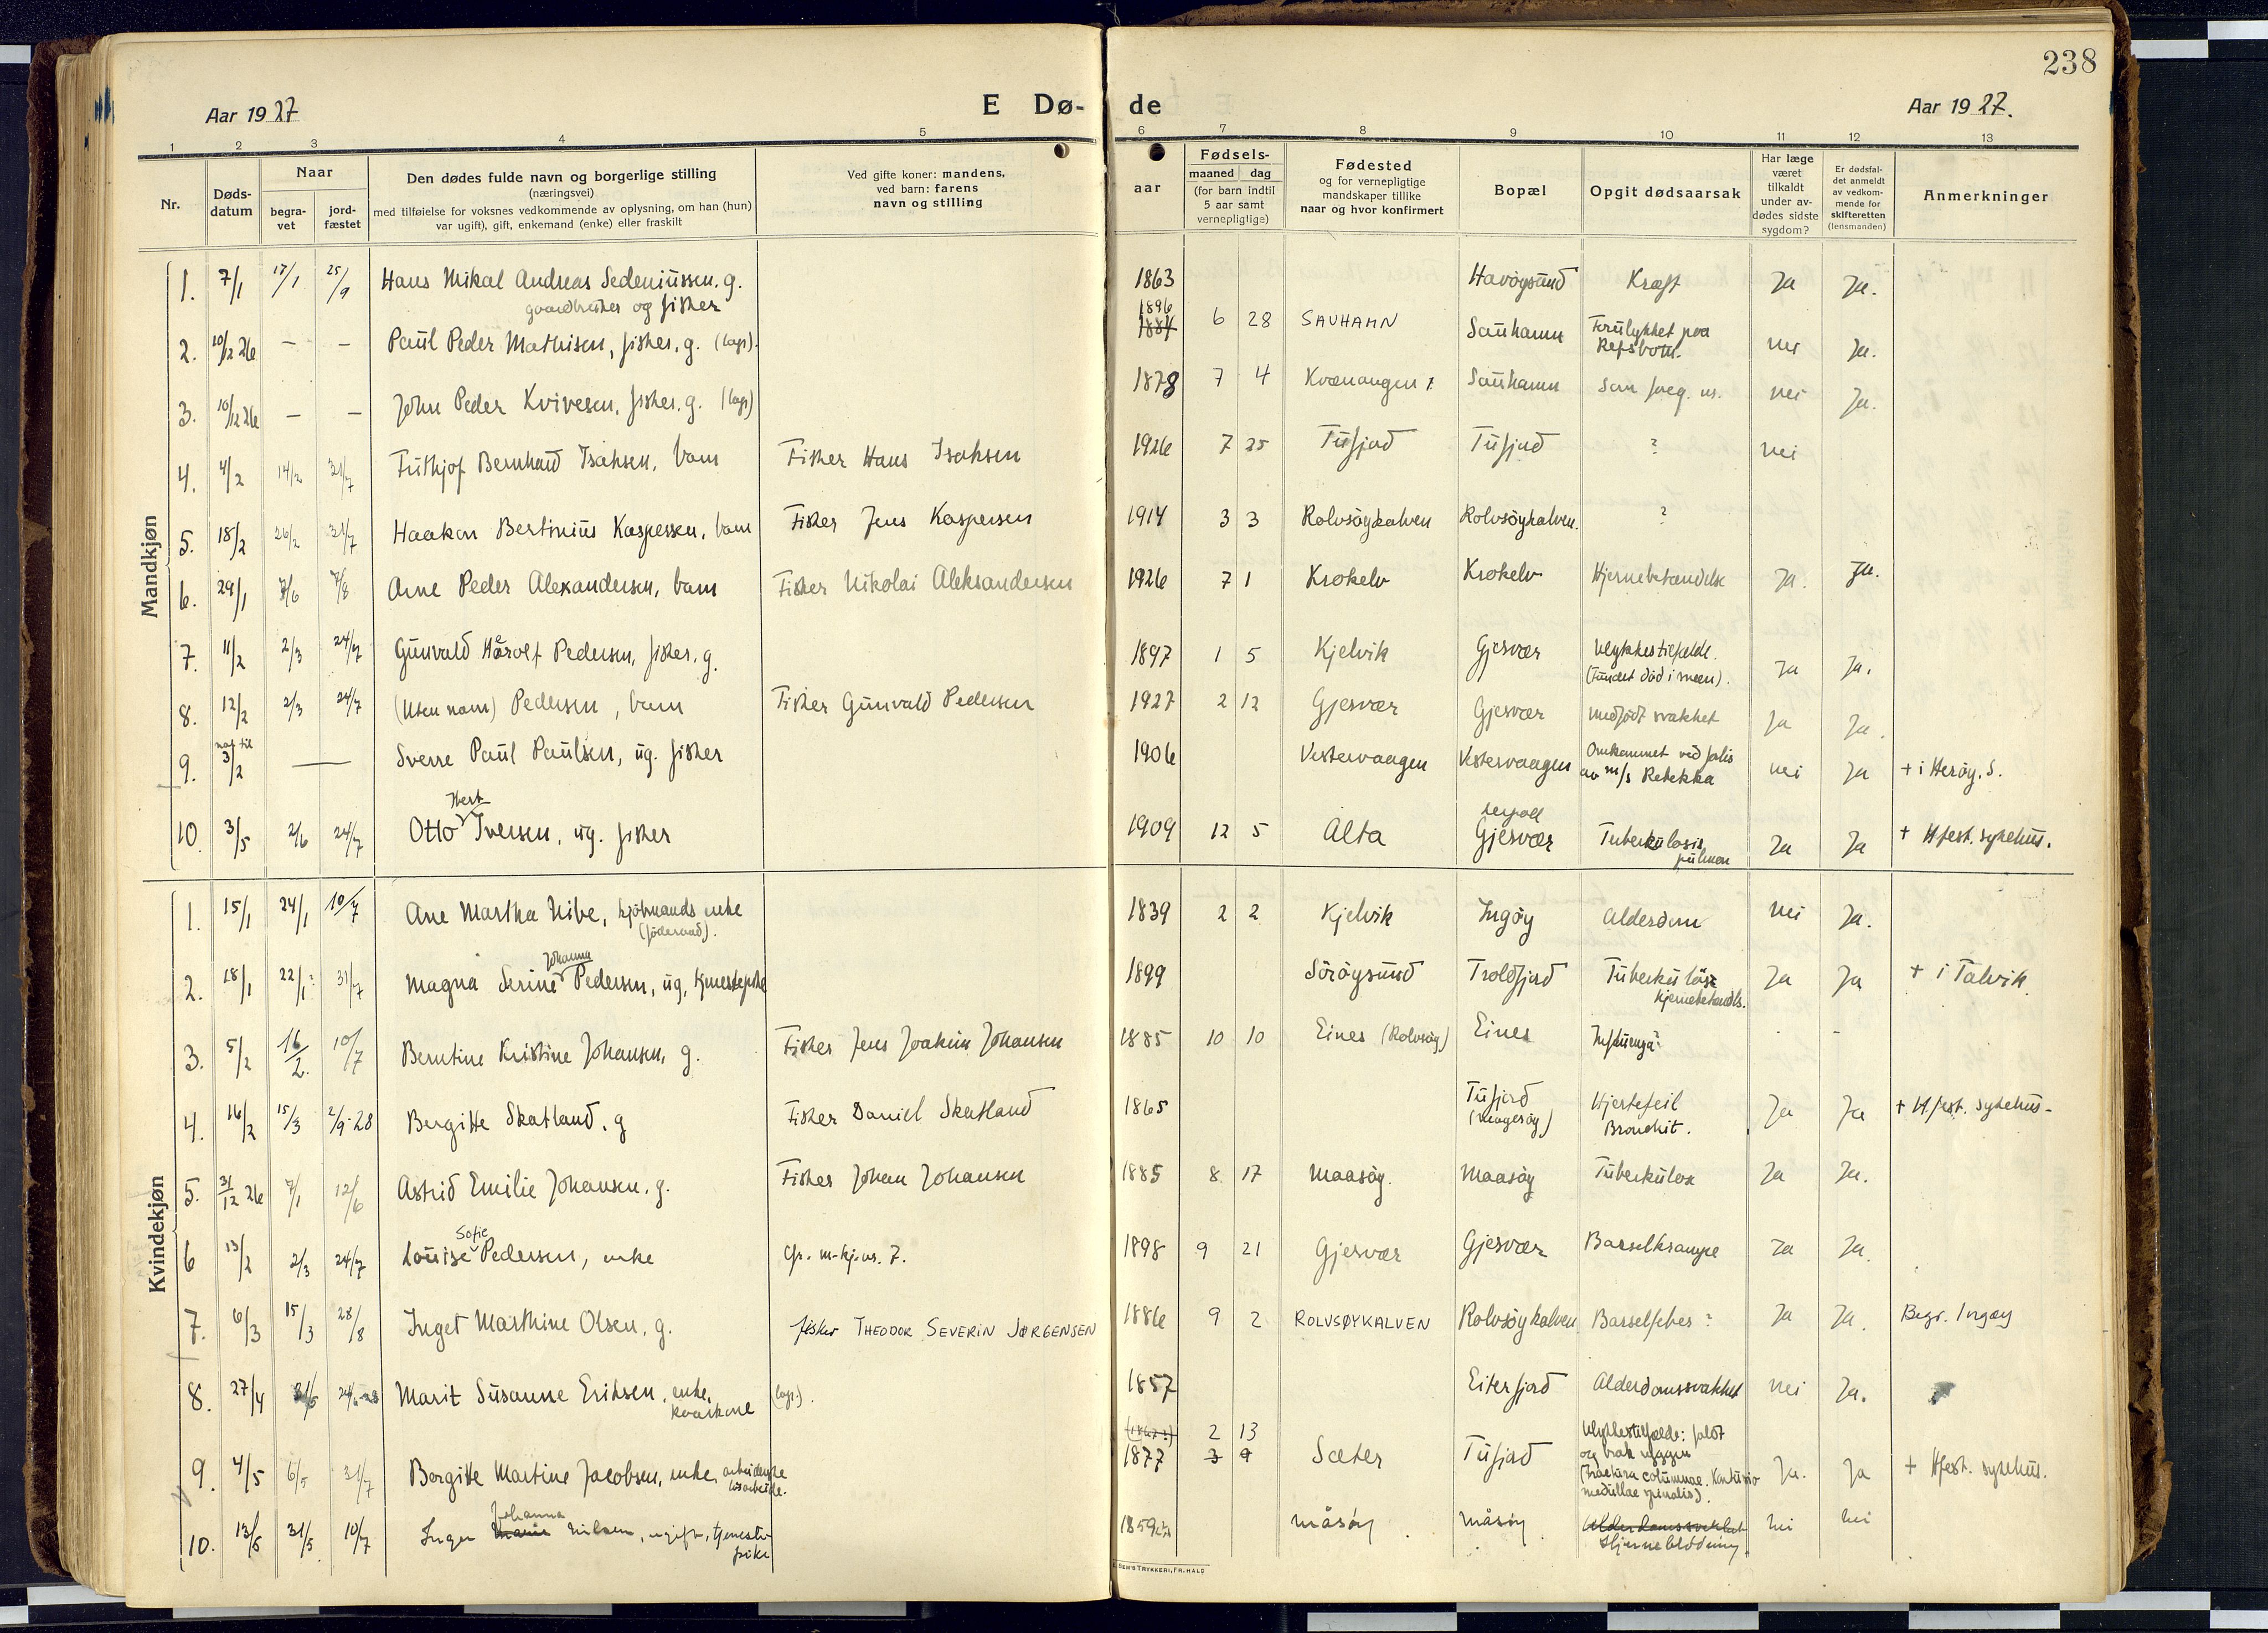 238
Aar 1927
E Dø-
de
Aar 1927.
1 2 3 4 5 6 7 8 9 10 11 12 13
Nr.
Døds-
datum
Naar
begra-
vet
jord-
fæstet
Den dødes fulde navn og borgerlige stilling
(næringsvei)
med tilføielse for voksnes vedkommende av oplysning, om han (hun)
var ugift), gift, enkemand (enke) eller fraskilt
Ved gifte koner: mandens,
ved barn: farens
navn og stilling
aar
Fødsels-
maaned dag
(for barn indtil
5 aar samt
vernepligtige)
Fødested
og for vernepligtige
mandskaper tillike
naar og hvor konfirmert
Bopæl
Opgit dødsaarsak
Har læge
været
tilkaldt
under av-
dødes sidste
sygdom?
Er dødsfal-
det anmeldt
av vedkom-
mende for
skifteretten
(lensmanden)
Anmerkninger
Mandkjøn
1. 7/1 17/1 25/9 Hans Mikal Andreas Sedeniussen, g. 1863 Havöysund Kræft Ja Ja.
gaardbruker og fisker
1896
2. 10/12 26 – – Paul Peder Mathisen, fisker, g. (lap). 1884 6 28 SAUHAMN Sauhamn Forulykket paa nei Ja.
Refsbotn.
3. 10/12 26 – – John Peder Kvivesen, fisker, g. (lap) 1878 7 4 Kvænangen Sauhamn Som foreg. nr. nei Ja.
4. 4/2 14/2 31/7 Frithjof Bernhard Isaksen, barn Fisker Hans Isaksen 1926 7 25 Tufjord Tufjord ? nei
5. 18/2 26/2 31/7 Haakon Bertinius Kaspersen, barn Fisker Jens Kaspersen 1914 3 3 Rolvsöykalven Rolvsöykalven. ?
6. 29/1 7/6 7/8 Arne Peder Alexandersen, barn Fisker Nikolai Aleksandersen 1926 7 1 Krokelv Krokelv Hjernebetændelse Ja. Ja.
7. 11/2 2/3 24/7 Gunvald Harolf Pedersen, fisker, g. 1897 1 5 Kjelvik Gjesvær Ulykkestilfælde. Ja Ja.
(Fundet död i sneen).
8. 12/2 2/3 24/7 (Uten navn) Pedersen, barn Fisker Gunvald Pedersen 1927 2 12 Gjesvær Gjesvær Medfödt svakhet Ja Ja.
nat til
9. 3/2 — Sverre Paul Paulsen, ug. fisker 1906 Vestervaagen Vestervaagen Omkommet ved forlis nei Ja + i Heröy. S.
av m/s Rebekka
Hert
10. 3/5 2/6 24/7 Otto Iversen, ug. fisker 1909 12 5 Alta Gjesvær Tuberkulosis Ja Ja + Hfest. sykehus.
pulmon
Kvindekjøn
1. 15/1 24/1 10/7 Ane Martha Nibe, kjöbmands enke 1839 2 2 Kjelvik Ingöy Alderdom Nei Ja.
(föderaad).
Johanna
2. 18/1 22/1? 31/7 Magna Serine Pedersen, ug, tjenestepike 1899 Söröysund Troldfjord Tuberkulös Ja Ja + i Talvik
hjernebetændls.
3. 5/2 16/2. 10/7 Berntine Kristine Johansen, g. Fisker Jens Joakim Johansen 1885 10 10 Eines (Rolvsöy) Eines Influensa? –
4. 16/2 15/3 2/9-28 Bergitte Skatland, g Fisker Daniel Skatland 1865 Tufjord Hjertefeil Ja Ja + Hfest. sykehus-
Bronchit.
5. 31/12 26 7/1 12/6 Astrid Emilie Johansen, g. Fisker Johan Johansen 1885 8 17 Maasöy. Maasöy Tuberkulose Ja Ja.
Sofie
6 13/2 2/3 24/7 Louise Pedersen, enke Cfr. m-kj. nr. 7. 1898 9 21 Gjesvær Gjesvær Barselkrampe Ja Ja.
7. 6/3 15/3 28/8 Inget Marthine Olsen, g. fisker THEODOR SEVERIN JØRGENSEN 1886 9 2 ROLVSØYKALVEN Rolvsöykalven Barselfeber? Ja Ja. Begr. Ingöy
8. 27/4 31/5 24/6-28 Marit Susanne Eriksen, enke, (lap). 1857 Eiterfjord Alderdomssvakhet nei Ja.
kvarkone
2 13 Ulykkestilfælde: faldt
9. 4/5 6/5 31/7 Bergitte Martine Jacobsen, enke, 1877 3 9 Sæter Tufjord og brak ryggen Ja. Ja + Hfest. sykehus.
(Fractura columnae. Kontusio
medullae spinalis).
Johanna
10. 13/5 31/5 10/7 Inger Marie Nilsen, ugift, tjeneste- 1859 måsöy måsöy Alderdomssvakhet nei nei
pike Hjerneblödning.
SEN'S TRYKKERI, FR.HALD